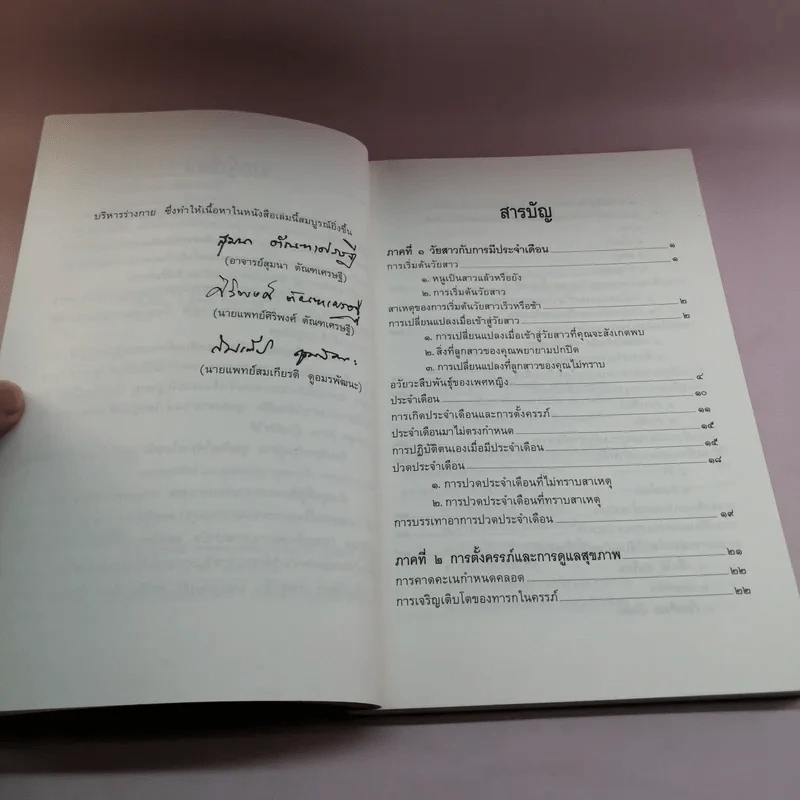 บริหารร่างกาย ซึ่งทำให้เนื้อหาในหนังสือเล่มนี้สมบูรณ์ยิ่งขึ้น
สุมนา ตัณฑเศรษฐี
(อาจารย์สุมนา ตัณฑเศรษฐี)
ศิริพงศ์ ตัณฑเศรษฐี
(นายแพทย์ศิริพงศ์ ตัณฑเศรษฐี)
(นายแพทย์สมเกียรติ ดูอมรพัฒนะ)
สารบัญ
ภาคที่ ๑ วัยสาวกับการมีประจำเดือน ๑
การเริ่มต้นวัยสาว ๑
๑. หนูเป็นสาวแล้วหรือยัง
๒. การเริ่มต้นวัยสาว
สาเหตุของการเริ่มต้นวัยสาวเร็วหรือช้า ๒
การเปลี่ยนแปลงเมื่อเข้าสู่วัยสาว ๒
๑. การเปลี่ยนแปลงเมื่อเข้าสู่วัยสาวที่คุณจะสังเกตพบ
๒. สิ่งที่ลูกสาวของคุณพยายามปกปิด
๓. การเปลี่ยนแปลงที่ลูกสาวของคุณไม่ทราบ
อวัยวะสืบพันธุ์ของเพศหญิง ๔
ประจำเดือน ๑๐
การเกิดประจำเดือนและการตั้งครรภ์ ๑๑
ประจำเดือนมาไม่ตรงกำหนด ๑๕
การปฏิบัติตนเองเมื่อมีประจำเดือน ๑๕
ปวดประจำเดือน ๑๘
๑. การปวดประจำเดือนที่ไม่ทราบสาเหตุ
๒. การปวดประจำเดือนที่ทราบสาเหตุ
การบรรเทาอาการปวดประจำเดือน ๑๙
ภาคที่ ๒ การตั้งครรภ์และการดูแลสุขภาพ ๒๑
การคาดคะเนกำหนดคลอด ๒๒
การเจริญเติบโตของทารกในครรภ์ ๒๒